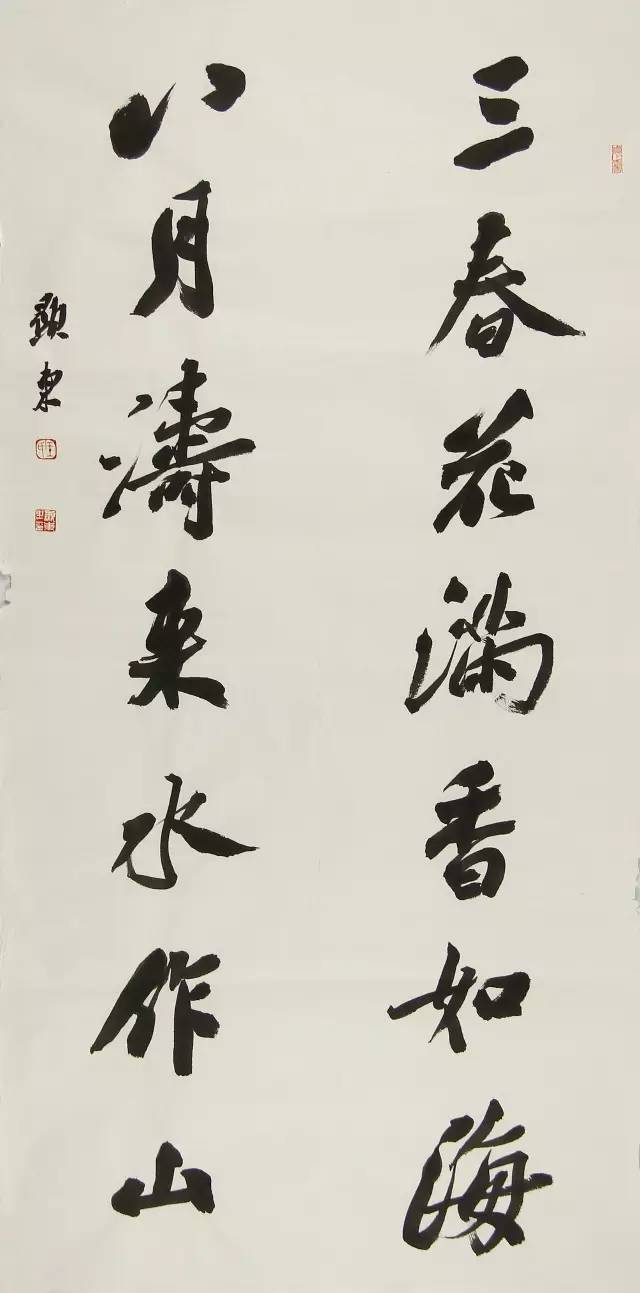 三春花满香如海
八月濤来水作山
顯東